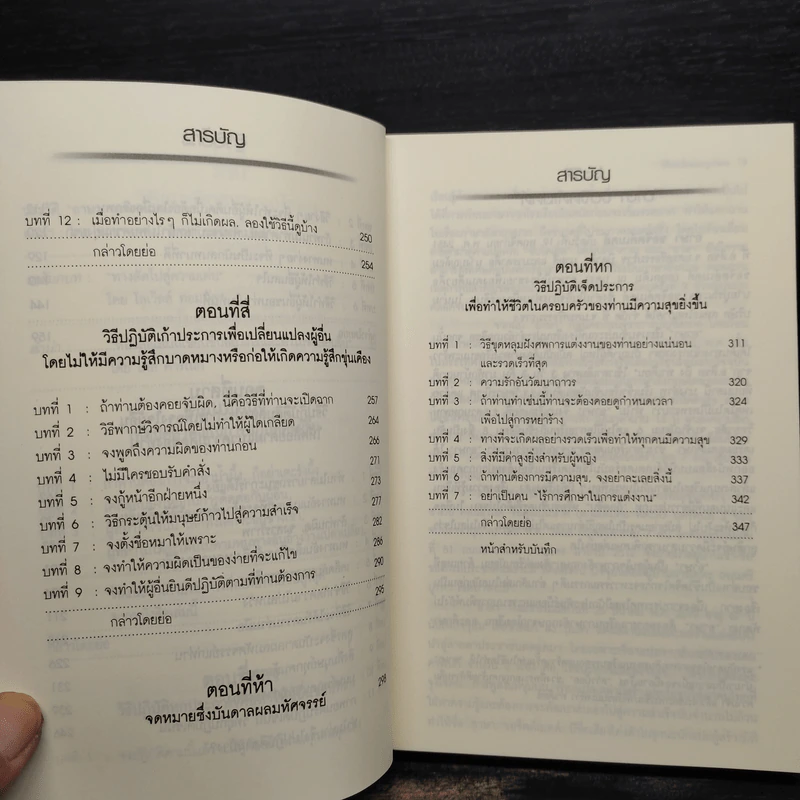 สารบัญ
บทที่ 12 : เมื่อทำอย่างไรๆ ก็ไม่เกิดผล, ลองใช้วิธีนี้ดูบ้าง 250
กล่าวโดยย่อ 254
ตอนที่สี่
วิธีปฏิบัติเก้าประการเพื่อเปลี่ยนแปลงผู้อื่น
โดยไม่ให้มีความรู้สึกบาดหมางหรือก่อให้เกิดความรู้สึกขุ่นเคือง
บทที่ 1 : ถ้าท่านต้องคอยจับผิด, นี่คือวิธีที่ท่านจะเปิดฉาก 257
บทที่ 2 : วิธีพากษ์วิจารณ์โดยไม่ทำให้ผู้ใดเกลียด 264
บทที่ 3 : จงพูดถึงความผิดของท่านก่อน 266
บทที่ 4 : ไม่มีใครชอบรับคำสั่ง 271
บทที่ 5 : จงกู้หน้าอีกฝ่ายหนึ่ง 273
บทที่ 6 : วิธีกระตุ้นให้มนุษย์ก้าวไปสู่ความสำเร็จ 277
บทที่ 7 : จงตั้งชื่อหมาให้เพราะ 282
บทที่ 8 : จงทำให้ความผิดเป็นของง่ายที่จะแก้ไข 286
บทที่ 9 : จงทำให้ผู้อื่นยินดีปฏิบัติตามที่ท่านต้องการ 290
กล่าวโดยย่อ 295
ตอนที่ห้า
จดหมายซึ่งบันดาลผลมหัศจรรย์ 298
สารบัญ
ตอนที่หก
วิธีปฏิบัติเจ็ดประการ
เพื่อทำให้ชีวิตในครอบครัวของท่านมีความสุขยิ่งขึ้น
บทที่ 1 : วิธีขุดหลุมฝังศพการแต่งงานของท่านอย่างแน่นอน 311
และรวดเร็วที่สุด
บทที่ 2 : ความรักอันวัฒนาถาวร 320
บทที่ 3 : ถ้าท่านทำเช่นนี้ท่านจะต้องคอยดูกำหนดเวลา 324
เพื่อไปสู่การหย่าร้าง
บทที่ 4 : ทางที่จะเกิดผลอย่างรวดเร็วเพื่อทำให้ทุกคนมีความสุข 329
บทที่ 5 : สิ่งที่มีค่าสูงยิ่งสำหรับผู้หญิง 333
บทที่ 6 : ถ้าท่านต้องการมีความสุข, จงอย่าละเลยสิ่งนี้ 337
บทที่ 7 : อย่าเป็นคน "ไร้การศึกษาในการแต่งงาน" 342
กล่าวโดยย่อ 347
หน้าสำหรับบันทึก